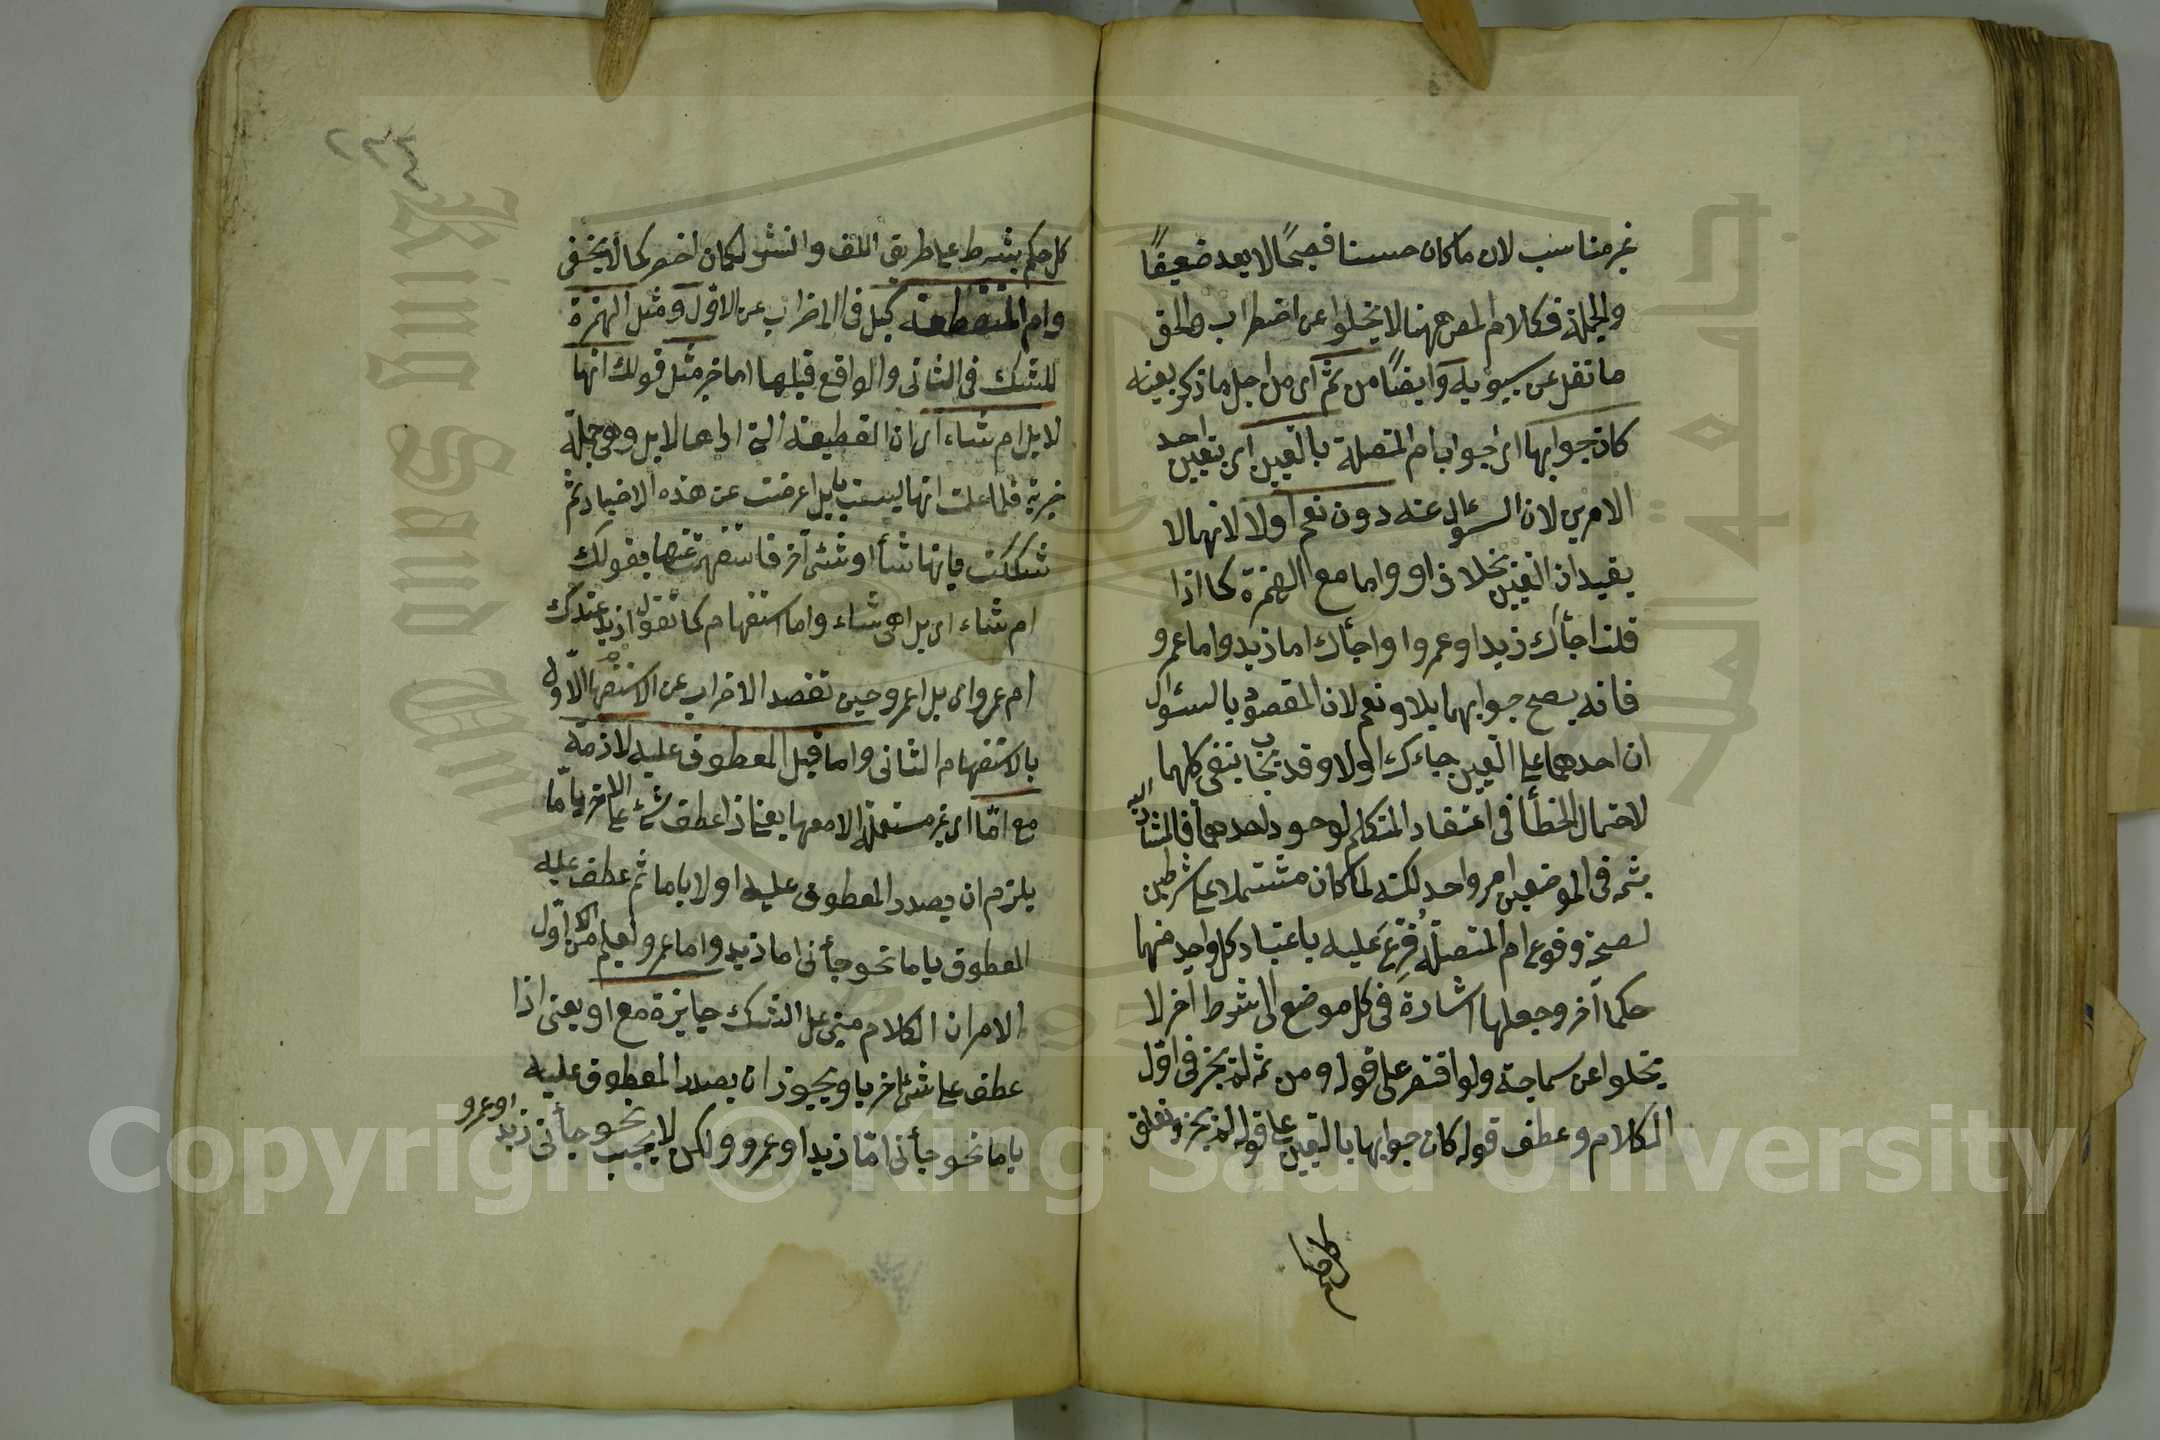 غير مناسب لان ما كان حسنا فصيحًا لا يعد ضعيفًا
والجملة فكلام المص ههنا لا يخلوا عن اضطراب والحق
ما نقل عن سيبويه وايضًا من ثم اى من اجل ما ذكر بعينه
كان جوابها اى جواب ام المتصلة بالتعيين اى بتعيين احد
الامرين لان السؤال عنه دون نعم او لا لانهما لا
يفيدان التعيين بخلاف او واما مع الهمزة كما اذا
قلت اجأك زيد او عمرو او اجأك اما زيد واما عمرو
فانه يصح جوابهما بلا ونعم لان المقصود بالسؤال
ان احدهما على التعيين جاءك اولا وقد يجاب بنفى كليهما
لاحتمال الخطأ فى اعتقاد المتكلم لوجود احدهما فالمشار اليه
بثمه فى الموضعين امر واحد لكنه لما كان مشتملا على شرطين
لصحة وقوع ام المتصلة فُرِّعَ عليه باعتبار كل واحد منهما
حكما آخر وجعلها اشارة فى كل موضع الى شرط آخر لا
يخلوا عن سماجة ولو اقتصر على قوله ومن ثمه لم يجز فى اول
الكلام وعطف قوله كان جوابها بالتعيين على قوله لم يجز وتعلق
كل حكم بشرط على طريق اللف والنشر لكان اخصر كما لا يخفى
وام المنقطعة كبل فى الاضراب عن الاوّل ومثل الهمزة
للشك فى الثانى والواقع قبلها اما خبر مثل قولك انها
لابل ام شاء اى ان القطيعة التى اراها لابل وهى جملة
خبرية فلما علمت انها ليست بابل اعرضت عن هذه الاخبار ثم
شككت بانها شأ او شئ آخر فاستفهمت عنها بقولك
ام شاء اى بل اهى شاء واما استفهام كما تقول ازيد عندك
ام عمرو اى بل اعمرو حين تقصد الاضراب عن الاستفهام الاول
بالاستفهام الثانى واما قبل المعطوف عليه لازمة
مع امّا اى غير مستعملة الا معها يعنى اذا عطف شئ على الاخر بامّا
يلزم ان يصدر المعطوف عليه اولا باما ثم عطف عليه
المعطوف باما نحو جأنى اما زيد واما عمرو ليعلم من الاوّل
الامر ان الكلام مبنى على الشك جايزة مع او يعنى اذا
عطف على شئ اخر باو يجوز ان يصدر المعطوف عليه
باما نحو جأنى امّا زيد او عمرو ولكن لا يجب نحو جأنى زيد او عمرو
٢٢٤
Copyright © King Saud University